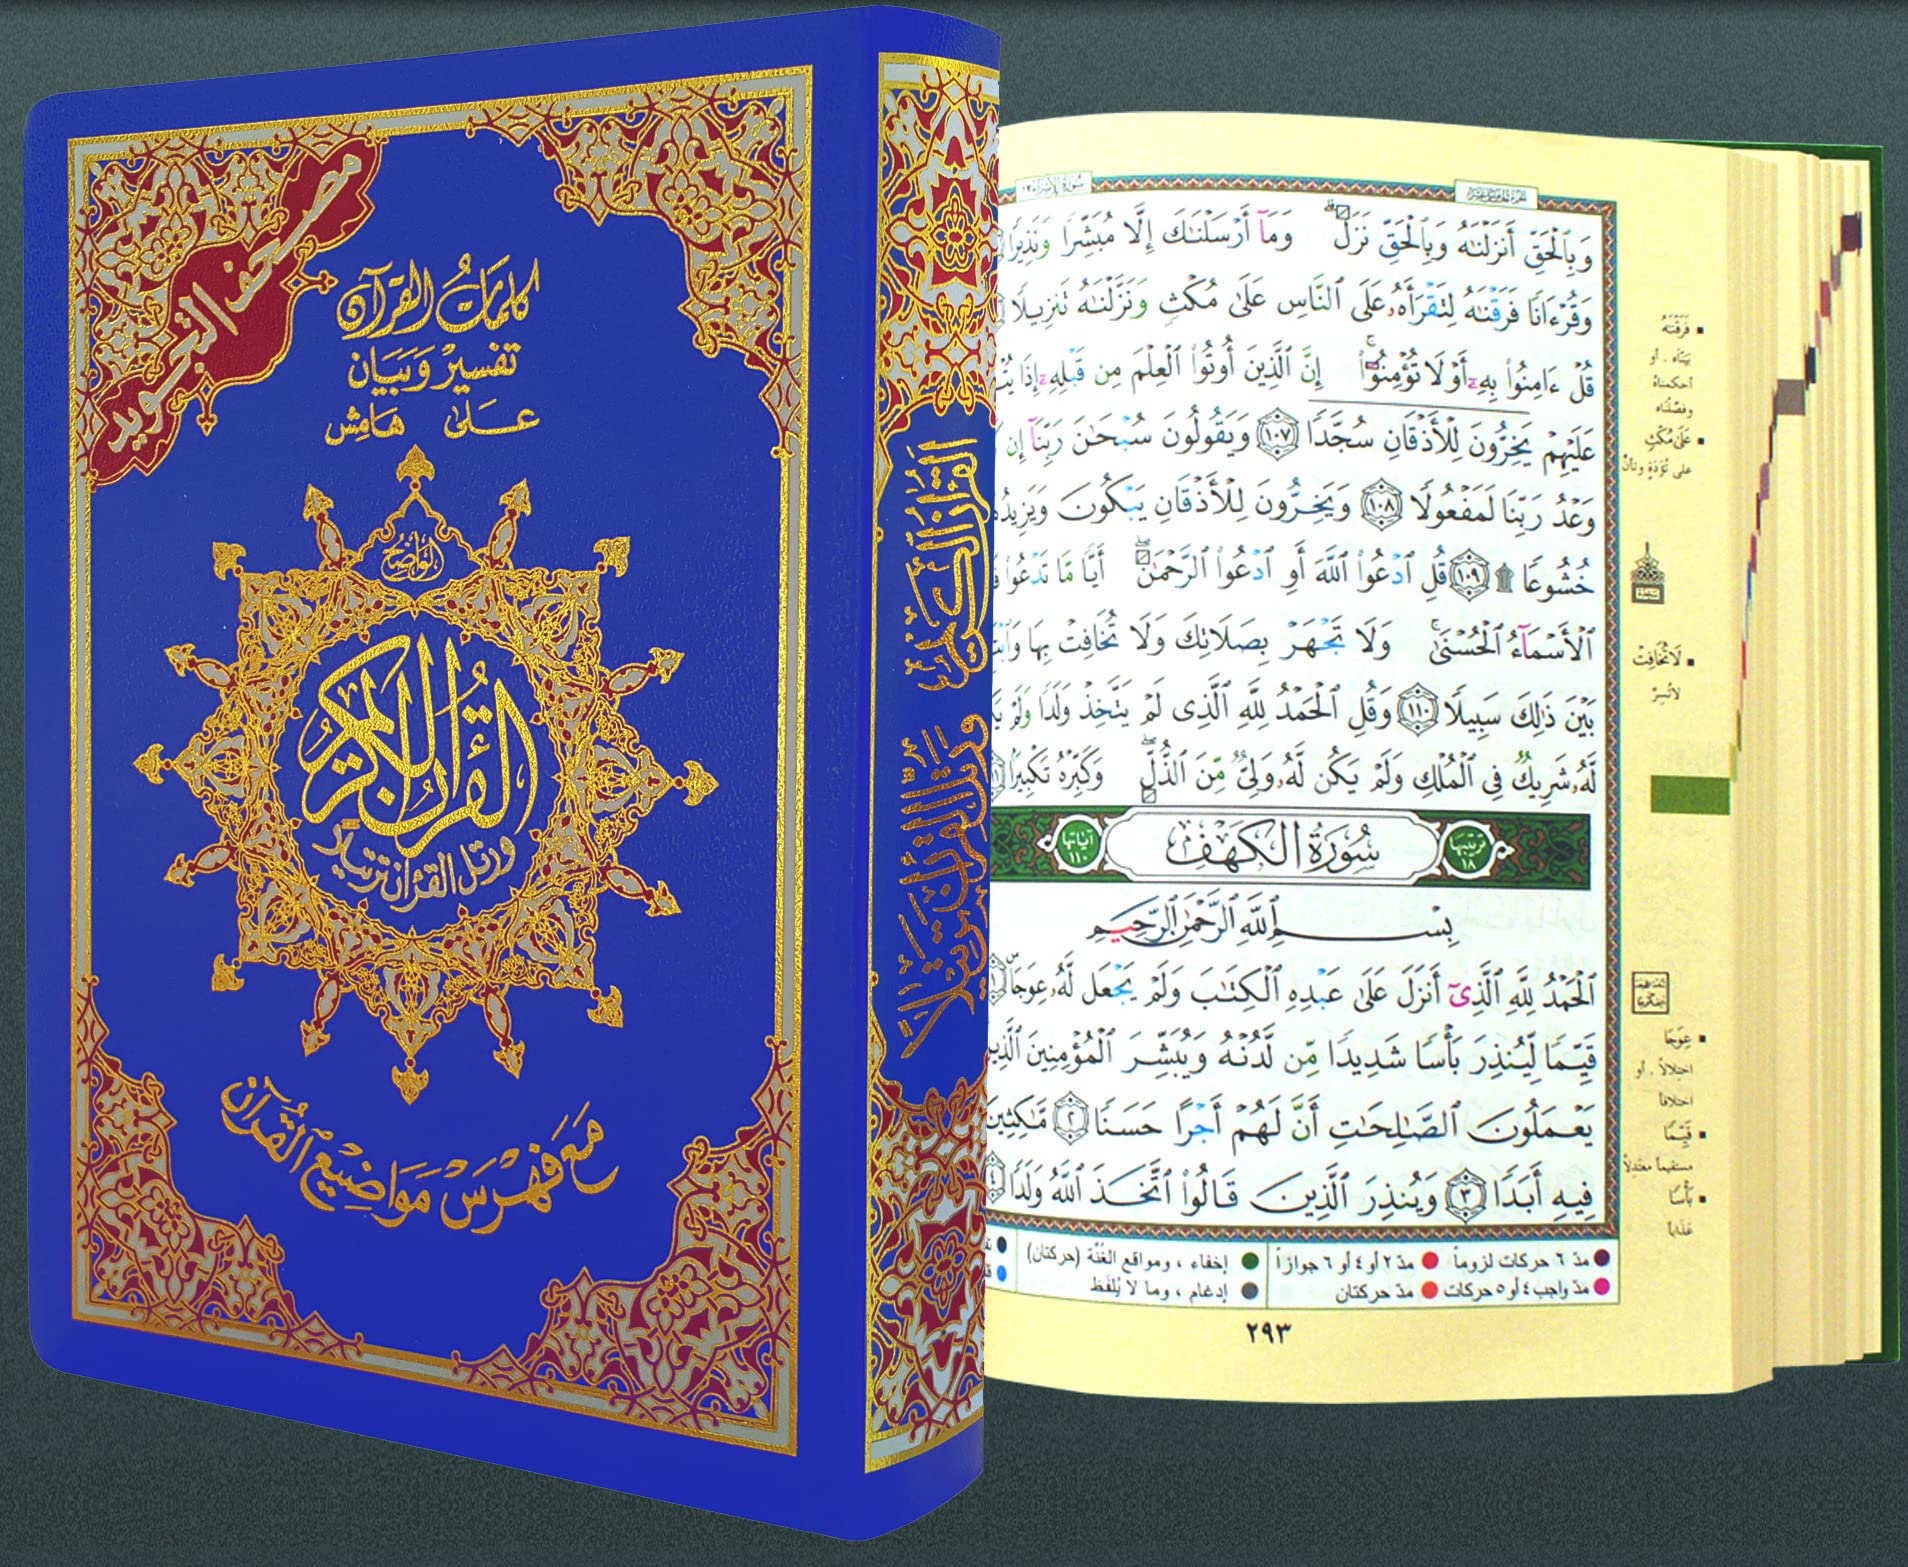 مصحف التجويد
كلمات القرآن
تفسير وبيان
على هامش
الواضح
القرآن الكريم
ورتل القرءان ترتيلا
مع فهرس مواضيع القرآن
القرآن الكريم ورتل القرآن ترتيلا
سورة الإسراء ١٧
وَبِٱلْحَقِّ أَنزَلْنَٰهُ وَبِٱلْحَقِّ نَزَلَ وَمَآ أَرْسَلْنَٰكَ إِلَّا مُبَشِّرًا وَنَذِيرًا
وَقُرْءَانًا فَرَقْنَٰهُ لِتَقْرَأَهُۥ عَلَى ٱلنَّاسِ عَلَىٰ مُكْثٍ وَنَزَّلْنَٰهُ تَنزِيلًا
قُلْ ءَامِنُوا۟ بِهِۦٓ أَوْ لَا تُؤْمِنُوٓا۟ إِنَّ ٱلَّذِينَ أُوتُوا۟ ٱلْعِلْمَ مِن قَبْلِهِۦٓ إِذَا
عَلَيْهِمْ يَخِرُّونَ لِلْأَذْقَانِ سُجَّدًا ١٠٧ وَيَقُولُونَ سُبْحَٰنَ رَبِّنَآ إِن
وَعْدُ رَبِّنَا لَمَفْعُولًا ١٠٨ وَيَخِرُّونَ لِلْأَذْقَانِ يَبْكُونَ وَيَزِيدُ
خُشُوعًا ۩ ١٠٩ قُلِ ٱدْعُوا۟ ٱللَّهَ أَوِ ٱدْعُوا۟ ٱلرَّحْمَٰنَ أَيًّا مَّا تَدْعُوا۟
ٱلْأَسْمَآءُ ٱلْحُسْنَىٰ وَلَا تَجْهَرْ بِصَلَاتِكَ وَلَا تُخَافِتْ بِهَا
بَيْنَ ذَٰلِكَ سَبِيلًا ١١٠ وَقُلِ ٱلْحَمْدُ لِلَّهِ ٱلَّذِى لَمْ يَتَّخِذْ وَلَدًا وَلَمْ
لَّهُۥ شَرِيكٌ فِى ٱلْمُلْكِ وَلَمْ يَكُن لَّهُۥ وَلِىٌّ مِّنَ ٱلذُّلِّ وَكَبِّرْهُ تَكْبِيرًا
ترتيبها ١٨ سُورَةُ الكَهْف آياتها ١١٠
بِسْمِ ٱللَّهِ ٱلرَّحْمَٰنِ ٱلرَّحِيمِ
ٱلْحَمْدُ لِلَّهِ ٱلَّذِىٓ أَنزَلَ عَلَىٰ عَبْدِهِ ٱلْكِتَٰبَ وَلَمْ يَجْعَل لَّهُۥ عِوَجَا ١
قَيِّمًا لِّيُنذِرَ بَأْسًا شَدِيدًا مِّن لَّدُنْهُ وَيُبَشِّرَ ٱلْمُؤْمِنِينَ ٱلَّذِينَ
يَعْمَلُونَ ٱلصَّٰلِحَٰتِ أَنَّ لَهُمْ أَجْرًا حَسَنًا ٢ مَّٰكِثِينَ
فِيهِ أَبَدًا ٣ وَيُنذِرَ ٱلَّذِينَ قَالُوا۟ ٱتَّخَذَ ٱللَّهُ وَلَدًا ٤
فَرَقْنَٰهُ
بيّناه . أو
أحكمناه
وفصّلناه
عَلَى مُكْثٍ
على تُؤَدَةٍ وتأنٍّ
لَا تُخَافِتْ
لا تُسِرّ
عِوَجَا
اختلالاً . أو
اختلافاً
قَيِّمًا
مستقيماً معتدلاً
بَأْسًا
عَذاباً
مدّ ٦ حركات لزوماً
مدّ ٢ أو ٤ أو ٦ جوازاً
مدّ واجب ٤ أو ٥ حركات
مدّ حركتان
إخفاء ، ومواقع الغُنَّة (حركتان)
إدغام ، وما لا يُلفَظ
٢٩٣